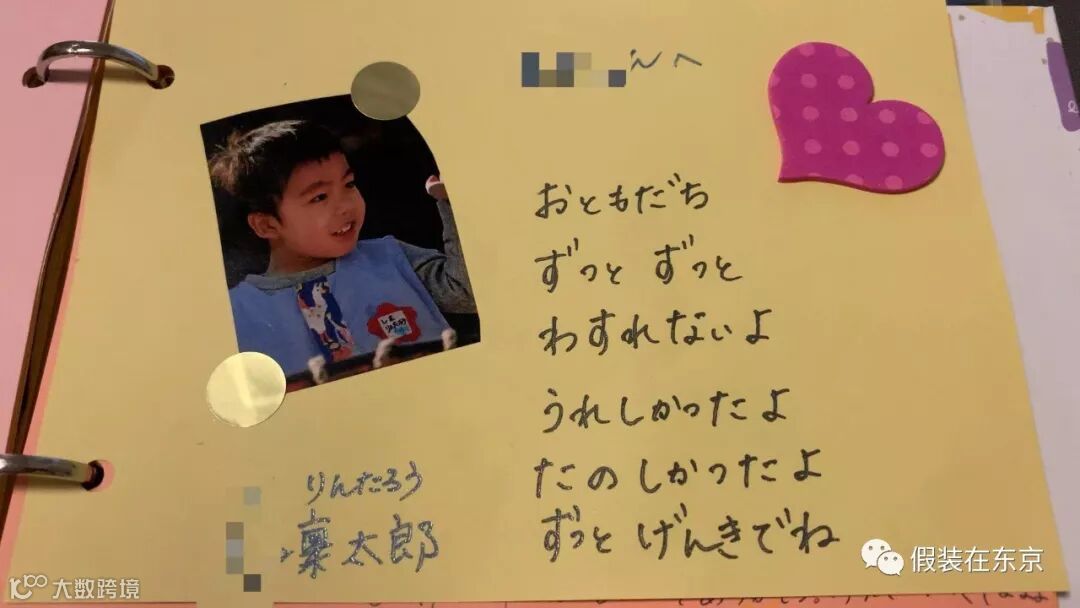 んへ
おともだち
ずっと ずっと
わすれないよ
うれしかったよ
たのしかったよ
ずっと げんきでね
りんたろう
稟太郎
假装在东京
大数跨境